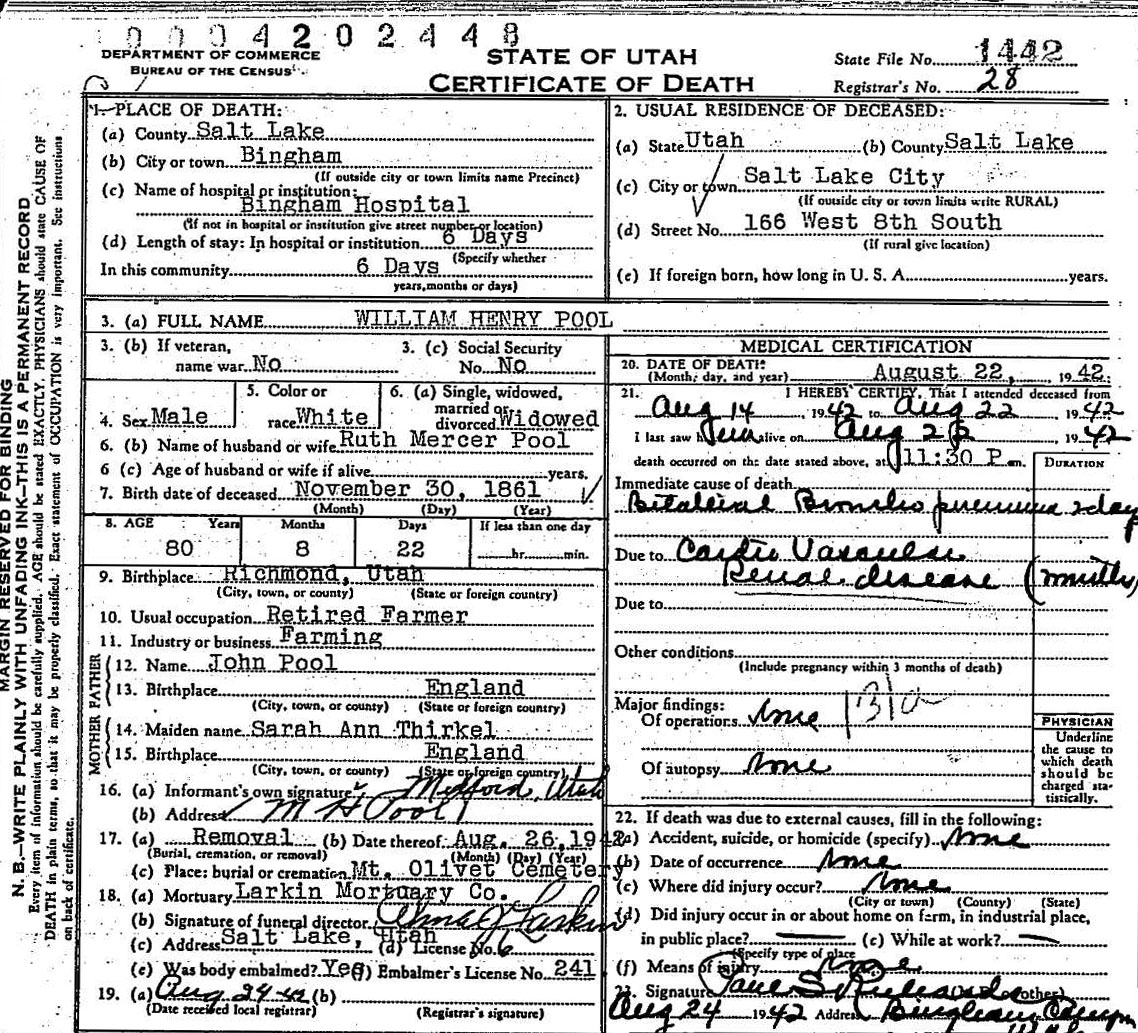 0004202448
DEPARTMENT OF COMMERCE
BUREAU OF THE CENSUS
STATE OF UTAH
CERTIFICATE OF DEATH
State File No. 1442
Registrar's No. 28
MARGIN RESERVED FOR BINDING
N. B.—WRITE PLAINLY WITH UNFADING INK—THIS IS A PERMANENT RECORD
Every item of information should be carefully supplied. AGE should be stated EXACTLY. PHYSICIANS should state CAUSE OF
DEATH in plain terms, so that it may be properly classified. Exact statement of OCCUPATION is very important. See instructions
on back of certificate.
1. PLACE OF DEATH:
(a) County Salt Lake
(b) City or town Bingham
(If outside city or town limits name Precinct)
(c) Name of hospital or institution:
Bingham Hospital
(If not in hospital or institution give street number or location)
(d) Length of stay: In hospital or institution 6 Days
(Specify whether
In this community 6 Days
years, months or days)
2. USUAL RESIDENCE OF DECEASED:
(a) State Utah (b) County Salt Lake
(c) City or town Salt Lake City
(If outside city or town limits write RURAL)
(d) Street No. 166 West 8th South
(If rural give location)
(e) If foreign born, how long in U. S. A. years.
3. (a) FULL NAME WILLIAM HENRY POOL
3. (b) If veteran,
name war No
3. (c) Social Security
No. No
4. Sex Male
5. Color or
race White
6. (a) Single, widowed,
married or
divorced Widowed
6. (b) Name of husband or wife Ruth Mercer Pool
6 (c) Age of husband or wife if alive years.
7. Birth date of deceased November 30, 1861
(Month) (Day) (Year)
8. AGE Years Months Days If less than one day
80 8 22 hr. min.
9. Birthplace Richmond, Utah
(City, town, or county) (State or foreign country)
10. Usual occupation Retired Farmer
11. Industry or business Farming
FATHER
12. Name John Pool
13. Birthplace England
(City, town, or county) (State or foreign country)
MOTHER
14. Maiden name Sarah Ann Thirkel
15. Birthplace England
(City, town, or county) (State or foreign country)
16. (a) Informant's own signature Midford, Utah
(b) Address M H Pool
17. (a) Removal (b) Date thereof Aug. 26, 1942
(Burial, cremation, or removal) (Month) (Day) (Year)
(c) Place: burial or cremation Mt. Olivet Cemetery
18. (a) Mortuary Larkin Mortuary Co.
(b) Signature of funeral director Alma J Larkin
(c) Address Salt Lake, Utah (d) License No. 6
(e) Was body embalmed? Yes (f) Embalmer's License No. 241
19. (a) Aug 24-42 (b)
(Date received local registrar) (Registrar's signature)
MEDICAL CERTIFICATION
20. DATE OF DEATH:
(Month, day, and year) August 22, 1942.
21. I HEREBY CERTIFY, That I attended deceased from
Aug 14 1942 to Aug 22 1942
I last saw him alive on Aug 22 1942
death occurred on the date stated above, at 11:30 P. m.
DURATION
Immediate cause of death
Bilateral Broncho pneumonia 2 day
Due to Cardio Vascular
Renal disease (months)
Due to
Other conditions
(Include pregnancy within 3 months of death)
Major findings:
Of operations none 131a
Of autopsy none
PHYSICIAN
Underline
the cause to
which death
should be
charged sta-
tistically.
22. If death was due to external causes, fill in the following:
(a) Accident, suicide, or homicide (specify) none
(b) Date of occurrence none
(c) Where did injury occur? none
(City or town) (County) (State)
(d) Did injury occur in or about home on farm, in industrial place,
in public place? (e) While at work?
(Specify type of place
(f) Means of injury none
23. Signature Paul S Richards other)
Aug 24 1942 Address Bingham Canyon